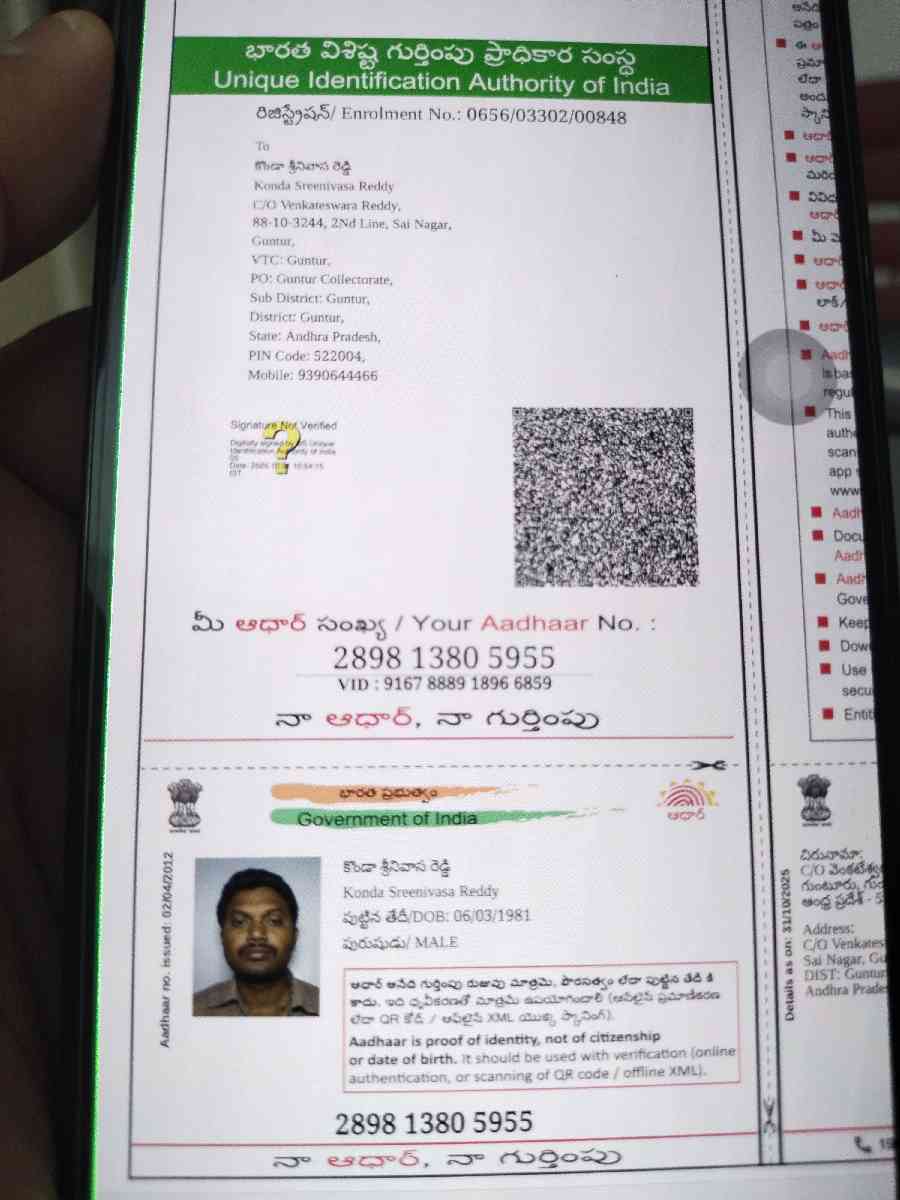 భారత విశిష్ట గుర్తింపు ప్రాధికార సంస్థ
Unique Identification Authority of India
రిజిస్ట్రేషన్/ Enrolment No.: 0656/03302/00848
To
కొండా శ్రీనివాస రెడ్డి
Konda Sreenivasa Reddy
C/O Venkateswara Reddy,
88-10-3244, 2Nd Line, Sai Nagar,
Guntur,
VTC: Guntur,
PO: Guntur Collectorate,
Sub District: Guntur,
District: Guntur,
State: Andhra Pradesh,
PIN Code: 522004,
Mobile: 9390644466
Signature Not Verified
Digitally signed by DS Unique
Identification Authority of India
మీ ఆధార్ సంఖ్య / Your Aadhaar No. :
2898 1380 5955
VID : 9167 8889 1896 6859
నా ఆధార్, నా గుర్తింపు
భారత ప్రభుత్వం
Government of India
ఆధార్
Aadhaar no. issued: 02/04/2012
కొండా శ్రీనివాస రెడ్డి
Konda Sreenivasa Reddy
పుట్టిన తేదీ/DOB: 06/03/1981
పురుషుడు/ MALE
ఆధార్ అనేది గుర్తింపు రుజువు మాత్రమే, పౌరసత్వం లేదా పుట్టిన తేదీ కి
కాదు. ఇది ధృవీకరణతో మాత్రమే ఉపయోగించాలి (ఆన్‌లైన్ ప్రమాణీకరణ
లేదా QR కోడ్ / ఆఫ్‌లైన్ XML యొక్క స్కానింగ్).
Aadhaar is proof of identity, not of citizenship
or date of birth. It should be used with verification (online
authentication, or scanning of QR code / offline XML).
2898 1380 5955
నా ఆధార్, నా గుర్తింపు
This
scan
app
www
Keep
Use
Details as on: 31/10/2025
చిరునామా:
C/O
Address:
C/O
Sai Nagar,
DIST: Guntur
Andhra